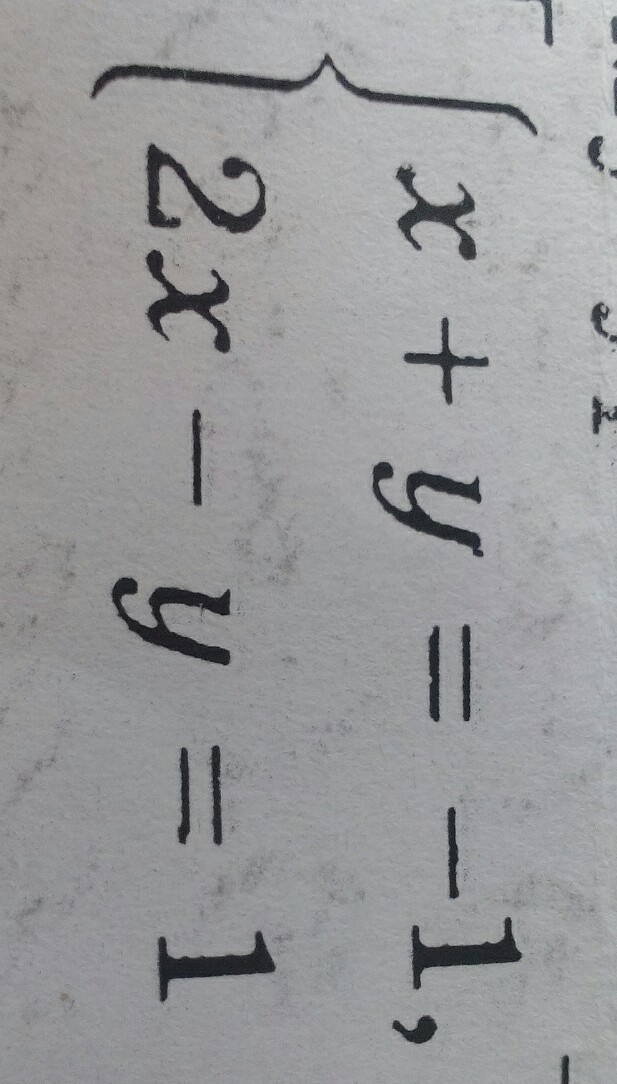 x + y = − 1,
2x − y = 1